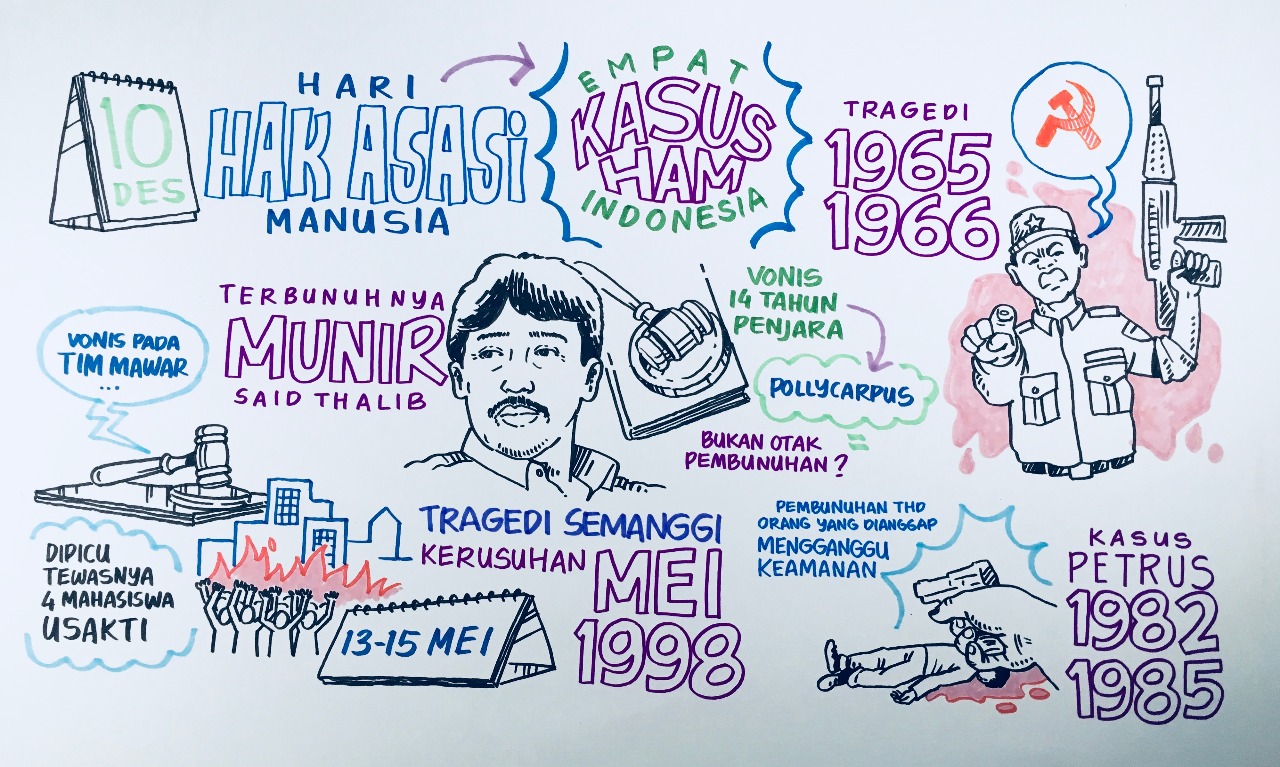 10
DES
HARI
HAK ASASi
MANUSIA
EMPAT
KASUS
HAM
INDONESIA
TRAGEDI
1965
1966
TERBUNUHNYA
MUNIR
SAID THALIB
VONIS
14 TAHUN
PENJARA
POLLYCARPUS
=
BUKAN OTAK
PEMBUNUHAN ?
VONIS PADA
TIM MAWAR
...
DIPICU
TEWASNYA
4 MAHASISWA
USAKTI
TRAGEDI SEMANGGI
KERUSUHAN MEI
1998
13-15 MEI
PEMBUNUHAN THD
ORANG YANG DIANGGAP
MENGGANGGU
KEAMANAN
KASUS
PETRUS
1982
1985